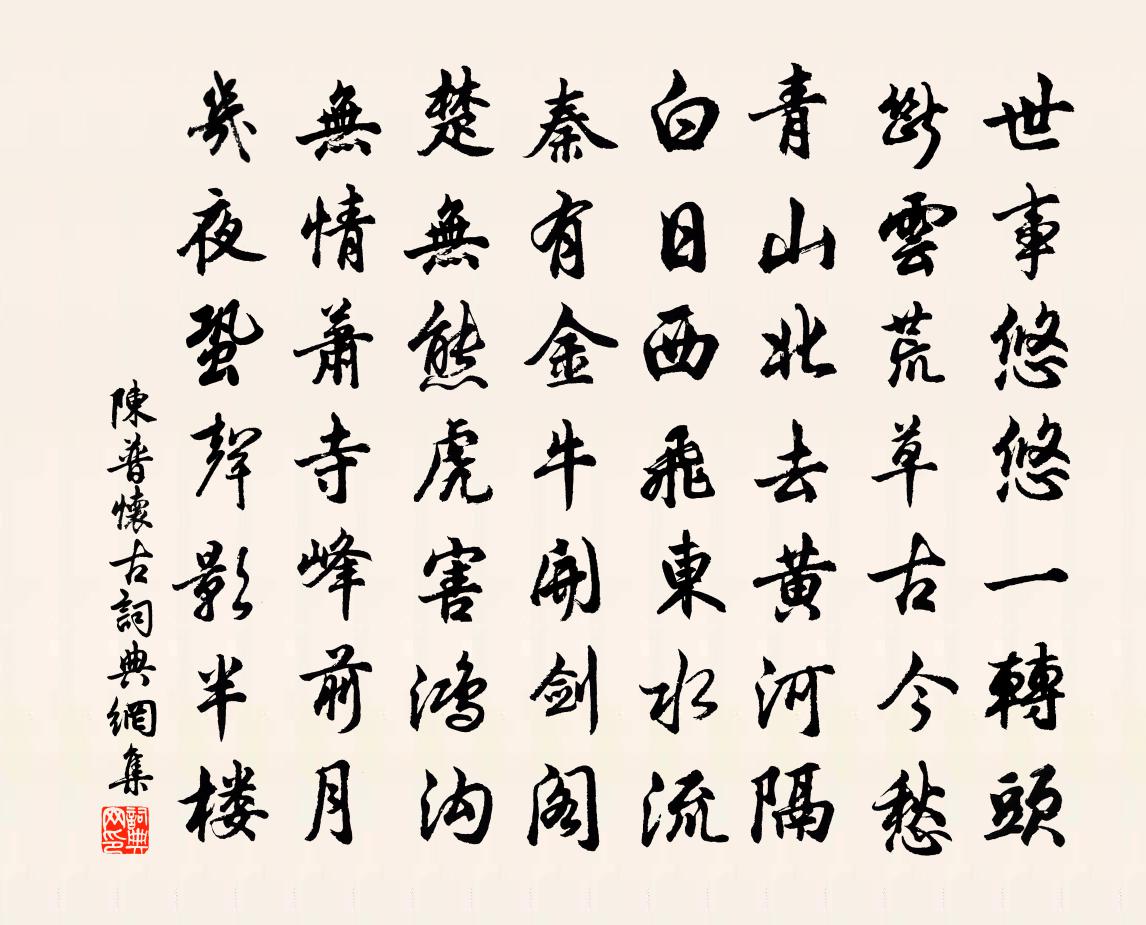 世事悠悠一轉頭
斷雲荒草古今愁
青山北去黃河隔
白日西飛東水流
秦有金牛開劍閣
楚無熊虎害鴻溝
無情蕭寺峰前月
幾夜蛩聲影半樓
陳普懷古詞典網集
詞典网印